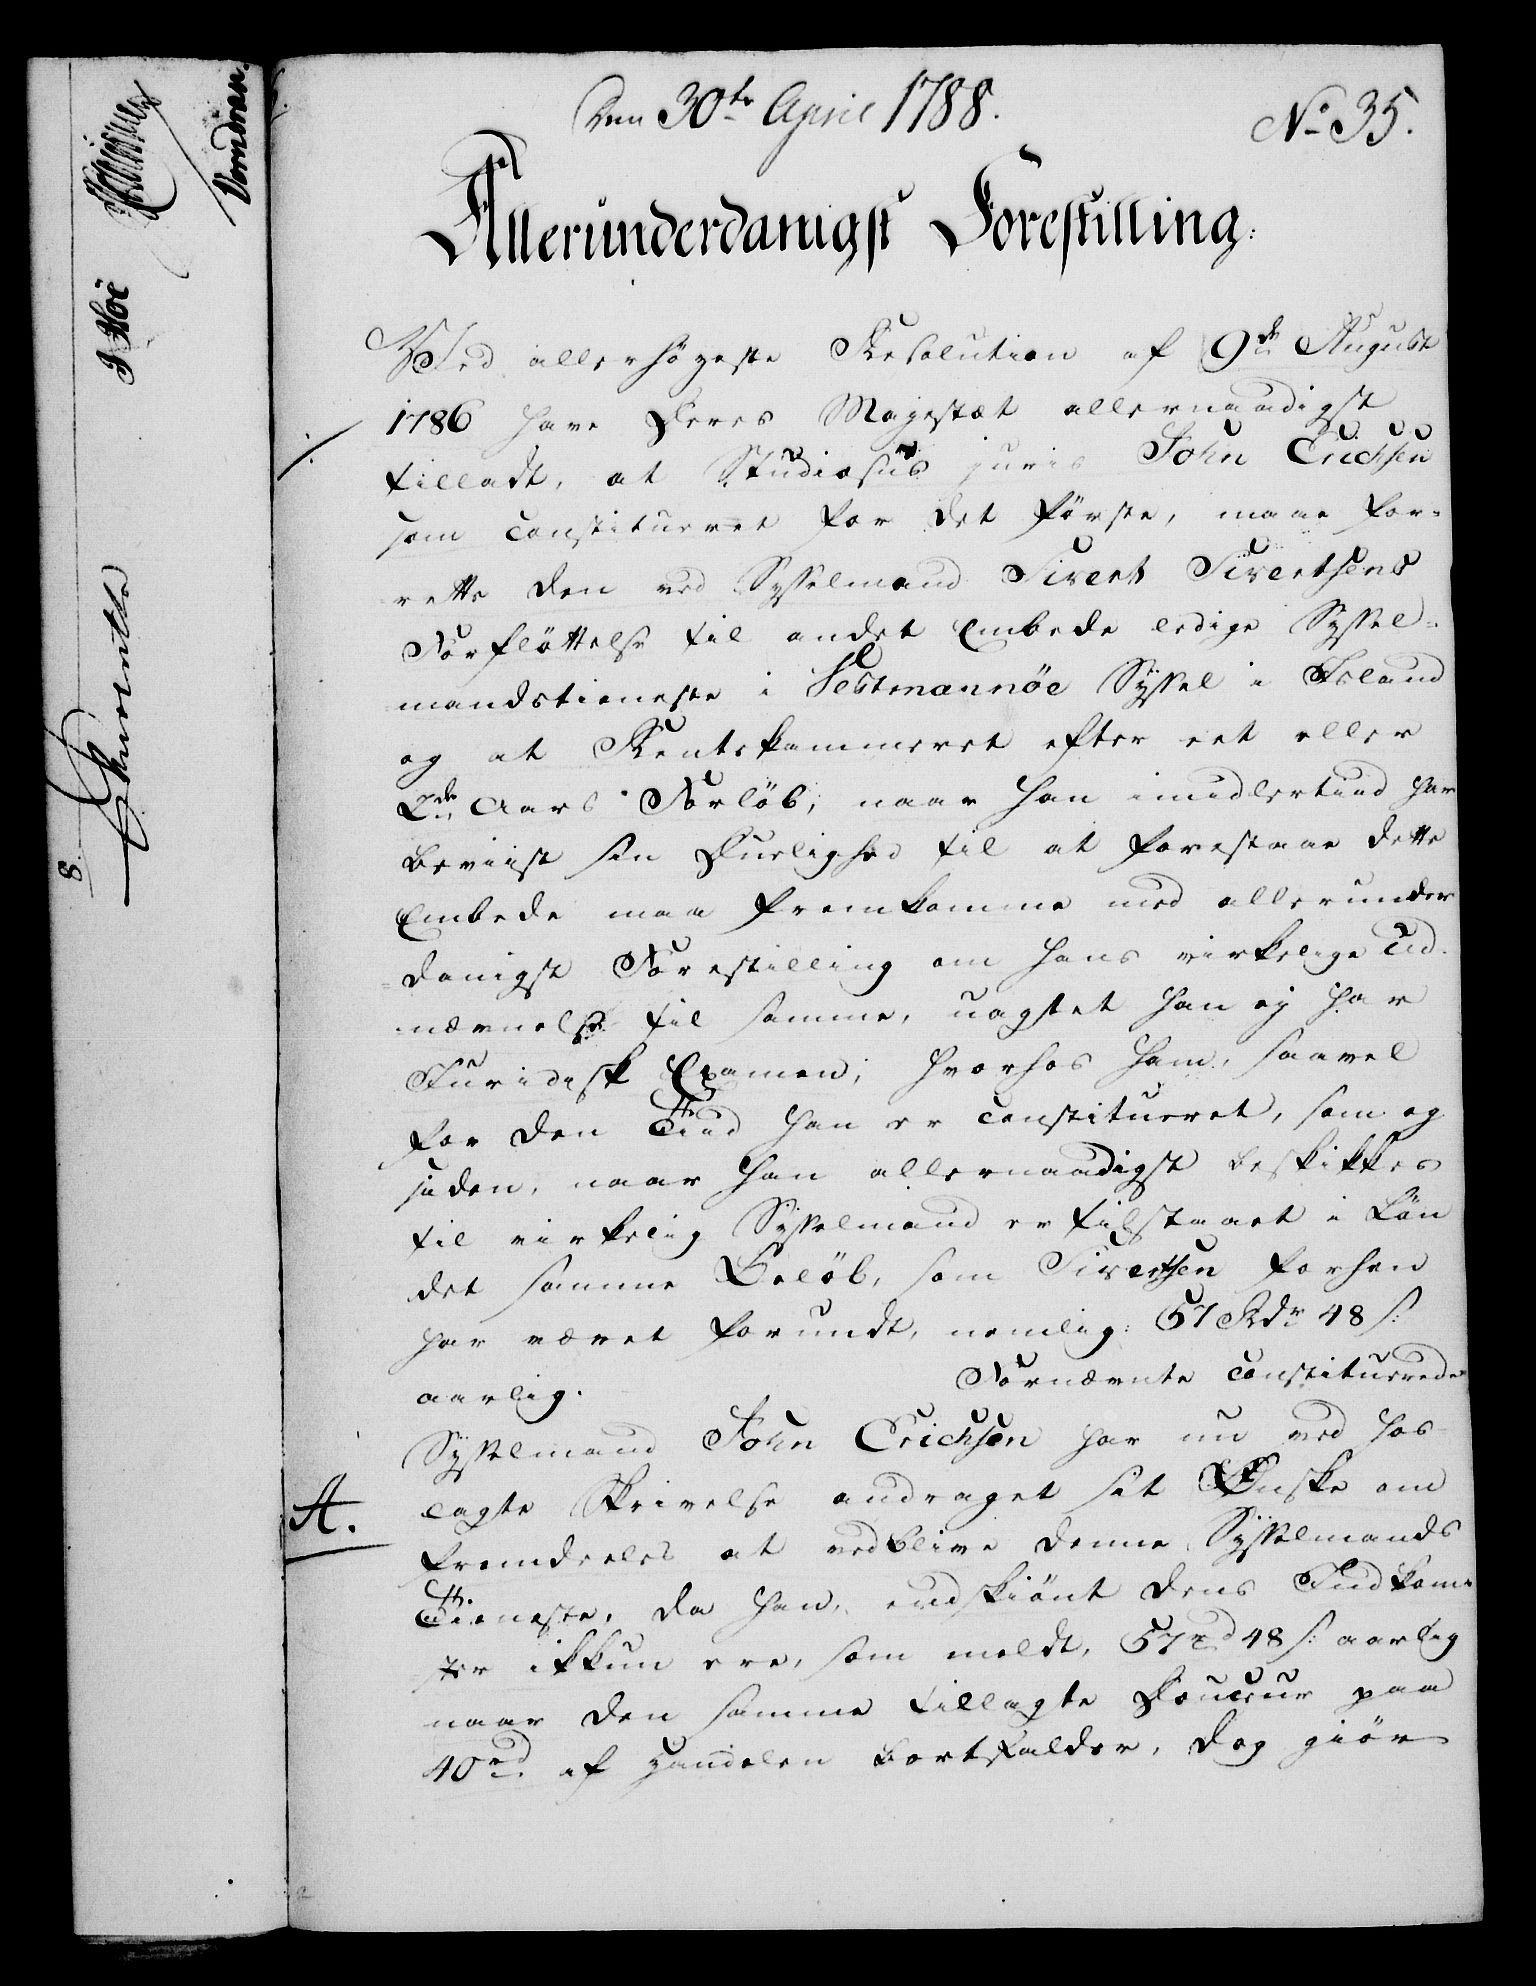 Den 30te April 1788.
No 35.
Allerunderdanigst Forestilling.
Ved allerhøyeste Resolution af 9de August
1786 have Deres Majestæt allernaadigst
tilladt, at Studiosus juris John Erichsen
som constitueret for det første, maae for-
rette den ved Sysselmand Sivert Sivertsens
Forfløttelse til andet Embede ledige Syssel-
mandstieneste i Vestmannöe Syssel i Island
og at Rentekammeret efter eet eller
2de Aars Forløb, naar han imidlertiid har
beviist sin Duelighed til at forestaae dette
Embede maa fremkomme med allerunder
danigst Forestilling om hans virkelige Ud-
nævnelse til samme, uagtet han ej har
Juridisk Examen; hvorhos ham, saavel
for den Tiid han er constitueret, som og
siden, naar han allernaadigst beskikkes
til virkelig Sysselmand er tilstaaet i Løn
det samme Beløb, som Sivertsen forhen
har været forundt, nemlig: 57 Rdr 48 s:
aarlig.
Fornævnte constituerede
Sysselmand John Erichsen har nu ved hos-
A.
lagte Skrivelse andraget sit Ønske om
fremdeeles at vedblive denne Sysselmands
Tieneste, da han, endskiønt dens Indkom-
ster ikkun ere, som meldt, 57 rd 48 s: aarlig
naar den samme tillagte Douceur paa
40 rd. af Handelen bortfalder, dog giør
8.
J Höe
Vormdran.